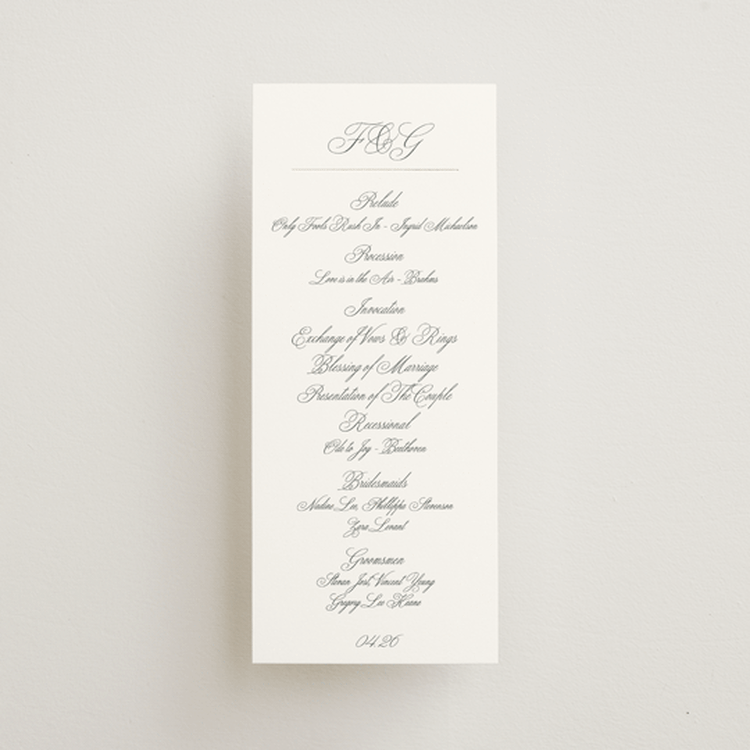 F&G
Prelude
Only Fools Rush In - Ingrid Michaelson
Procession
Love is in the Air - Brahms
Invocation
Exchange of Vows & Rings
Blessing of Marriage
Presentation of The Couple
Recessional
Ode to Joy - Beethoven
Bridesmaids
Nadine Lee, Phillippa Stevenson
Zara Levant
Groomsmen
Steven Jost, Vincent Young
Gregory Lee Keane
04.26